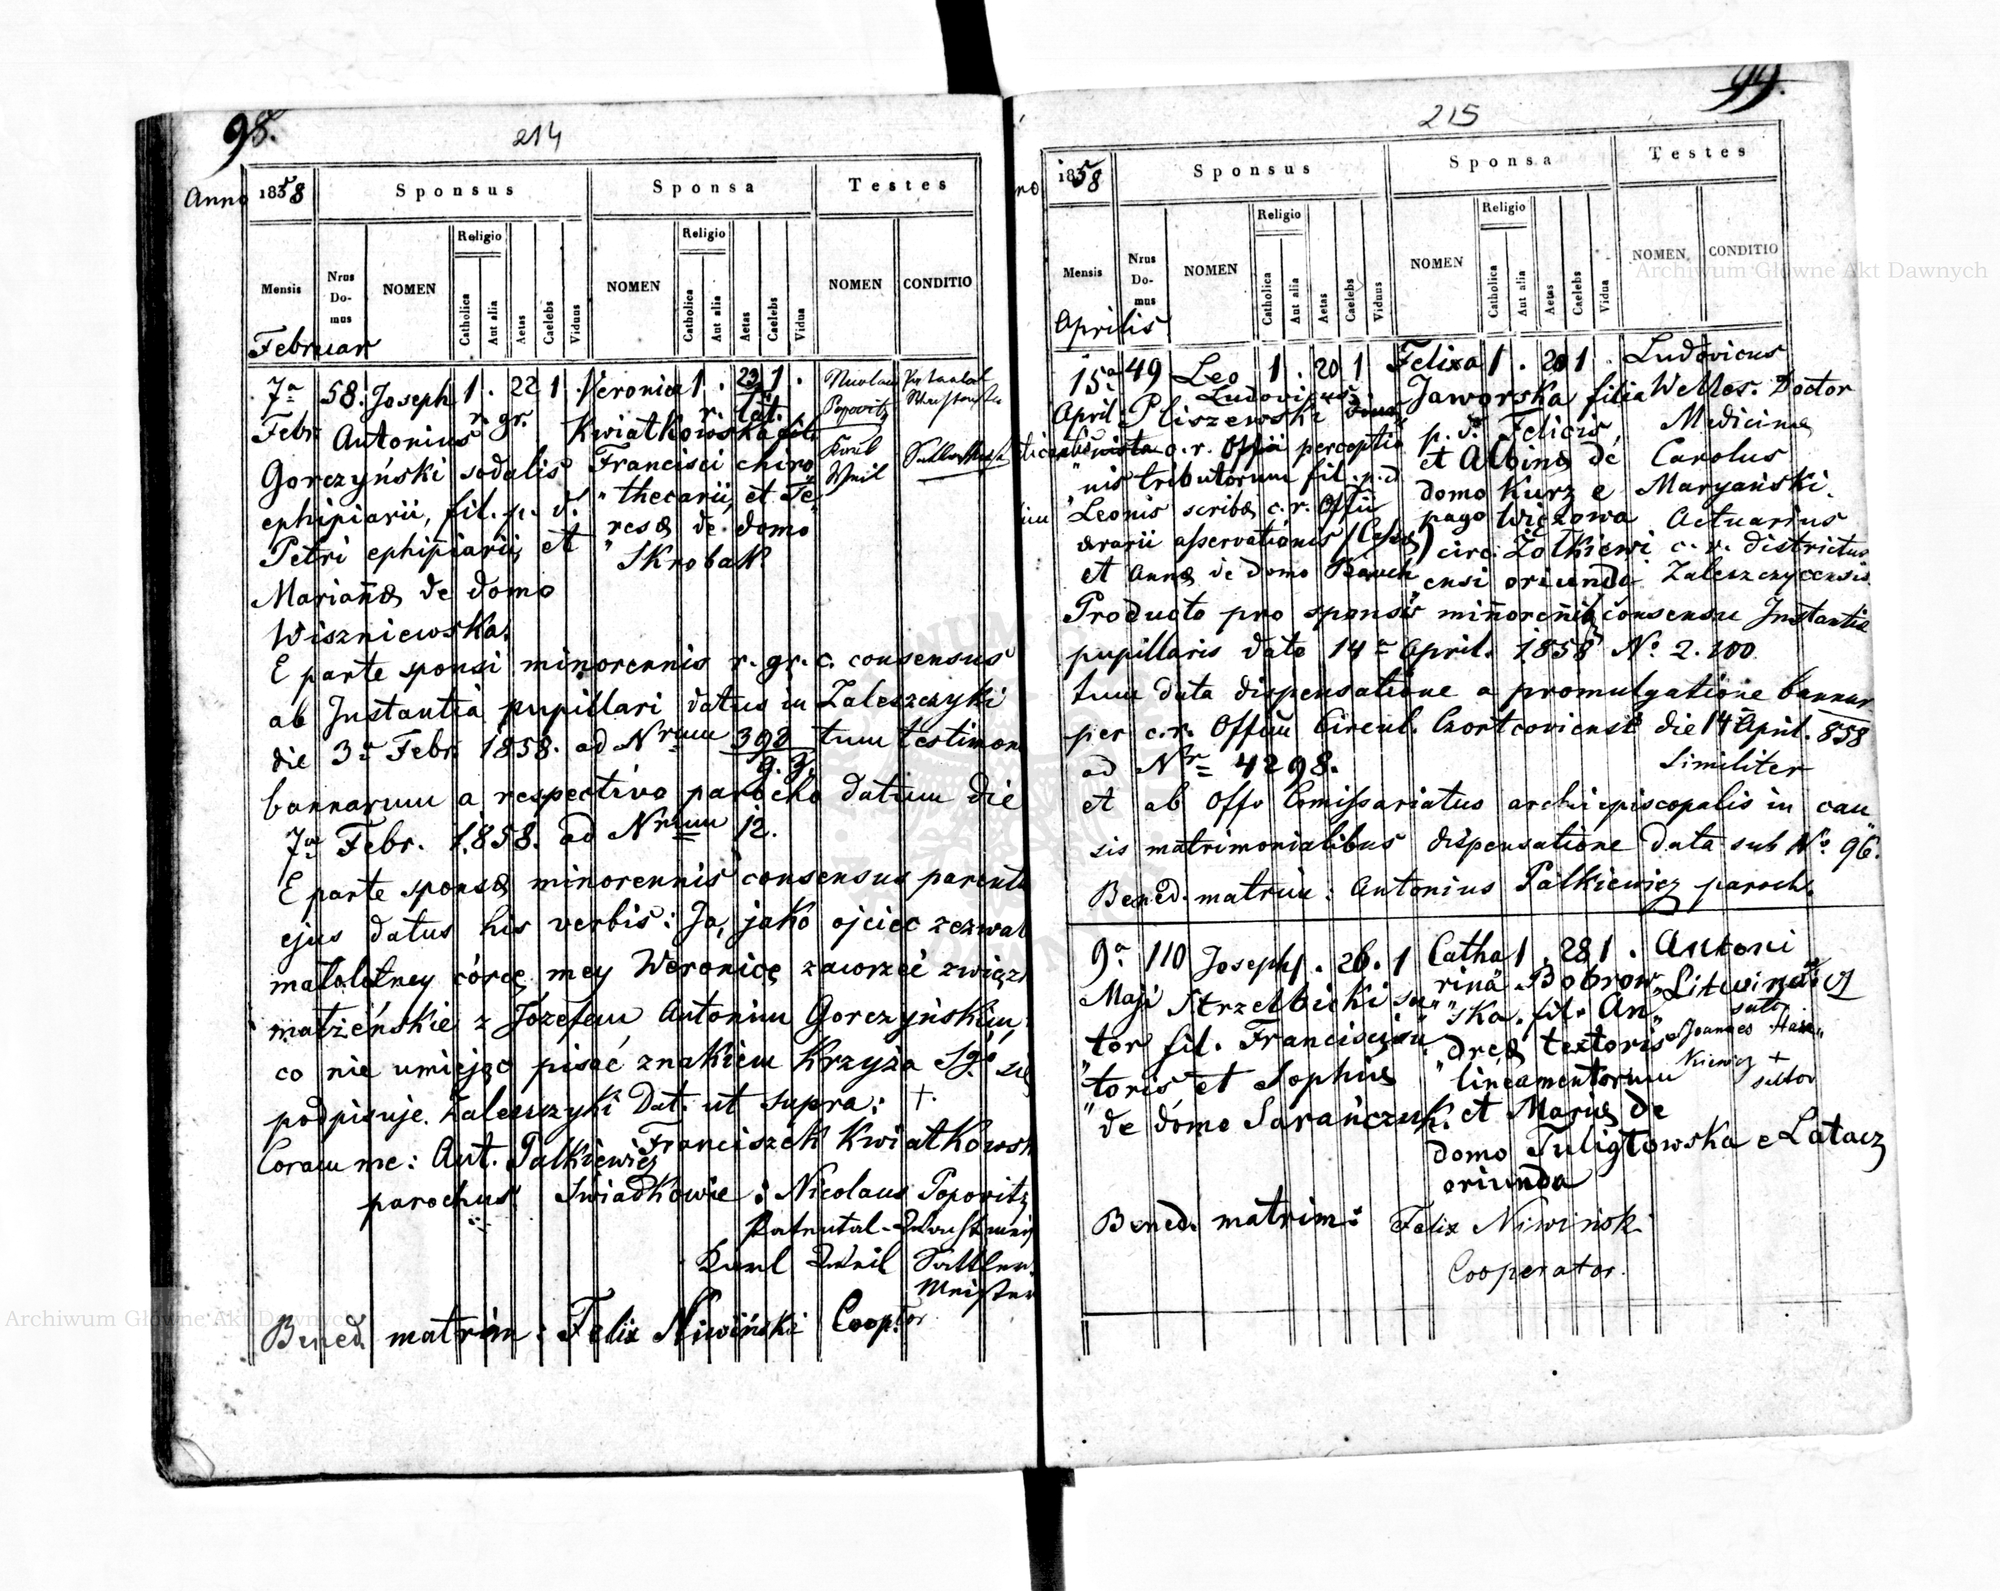 98.
214
Anno 1858
Sponsus
Sponsa
Testes
Mensis
Nrus Domus
NOMEN
Religio
Catholica
Aut alia
Aetas
Caelebs
Viduus
NOMEN
Religio
Catholica
Aut alia
Aetas
Caelebs
Vidua
NOMEN
CONDITIO
Februar
7a Febr. 58. Joseph 1 . 22 1 .
r. gr.
Antonius
Gorczyński sodalis
ephipiarii, fil. p. d.
Petri ephipiarii, et
Marianæ de domo
Wiszniewska.
Veronica 1 . 23 1 .
r. lat.
Kwiatkowska fil.
Francisci chiro
thecarii, et Te
resæ de domo
Skrobak
Nicolaus
Popovitz
Karl
Weil
E parte sponsi minorennis r. gr. c. consensus
ab Instantia pupillari datus in Zaleszczyki
die 3a Febr. 1858. ad Nrum 398 tum testimon
g. z.
bannarum a respectivo parocho datum die
7a Febr. 1858. ad Nrum 12.
E parte sponsæ minorennis consensus parentis
ejus datus his verbis: Ja, jako ojciec zezwal
małoletney córce mey Weronice zawrzeć związ
małżeńskie z Józefem Antonim Gorczyńskim,
co nie umiejąc pisać znakiem Krzyża Sgo się
podpisuje. Zaleszczyki Dat. ut supra: +
Franciszek Kwiatkowsk
Coram me: Ant. Palkiewicz
parochus
Świadkowie: Nicolaus Popovitz
Karl Weil Sattler
Meister
Bened. matrim: Felix Niwiński Cooptor
99.
215
1858
Sponsus
Sponsa
Testes
Mensis
Nrus Domus
NOMEN
Religio
Catholica
Aut alia
Aetas
Caelebs
Viduus
NOMEN
Religio
Catholica
Aut alia
Aetas
Caelebs
Vidua
NOMEN
CONDITIO
Aprilis
15a April. 49 Leo 1 . 20 1
Ludovicus
Pliszewski
c. r. Offii perceptio
nis tributorum fil. p. d.
Leonis scribæ c. r. Offii
ærarii asservationis (Cassæ)
et Annæ de domo Bauch
Felixa 1 . 20 1 .
Jaworska filia
p. d. Felicis,
et Albinæ de
domo Kurz e
pago Więzowa
circ. Żółkiewi
ensi oriunda
Ludovicus
Welles. Doctor
Medicinæ
Carolus
Maryański.
Actuarius
c. r. districtus
Zaleszczycensis
Producto pro sponsis minorenib consensu Instantiæ
pupillaris dato 14a April. 1858 No. 2.100
tum data dispensatione a promulgatione bannar
per c. r. Offium Circul. Czortcoviense die 14 April. 858
ad Nr 4298. Similiter
et ab Offo Comissariatus archiepiscopalis in cau
sis matrimonialibus dispensatione data sub No. 96.
Bened. matrim: Antonius Palkiewicz paroch.
9a Maji 110 Joseph 1 . 26 . 1
Strzelbicki su
tor fil. Francisci su
toris et Sophiæ
de domo Sarańczuk.
Catha 1 . 28 1 .
rina Bobrow
ska. fil. An
dreæ textoris
lineamentorum
et Mariæ de
domo Tuligłowska e Latacz
oriunda
Antoni
Litwinowicz
sutor
Joannes
+
sutor
Bened. matrim: Felix Niwiński
Cooperator.
Archiwum Główne Akt Dawnych
Archiwum Główne Akt Dawnych